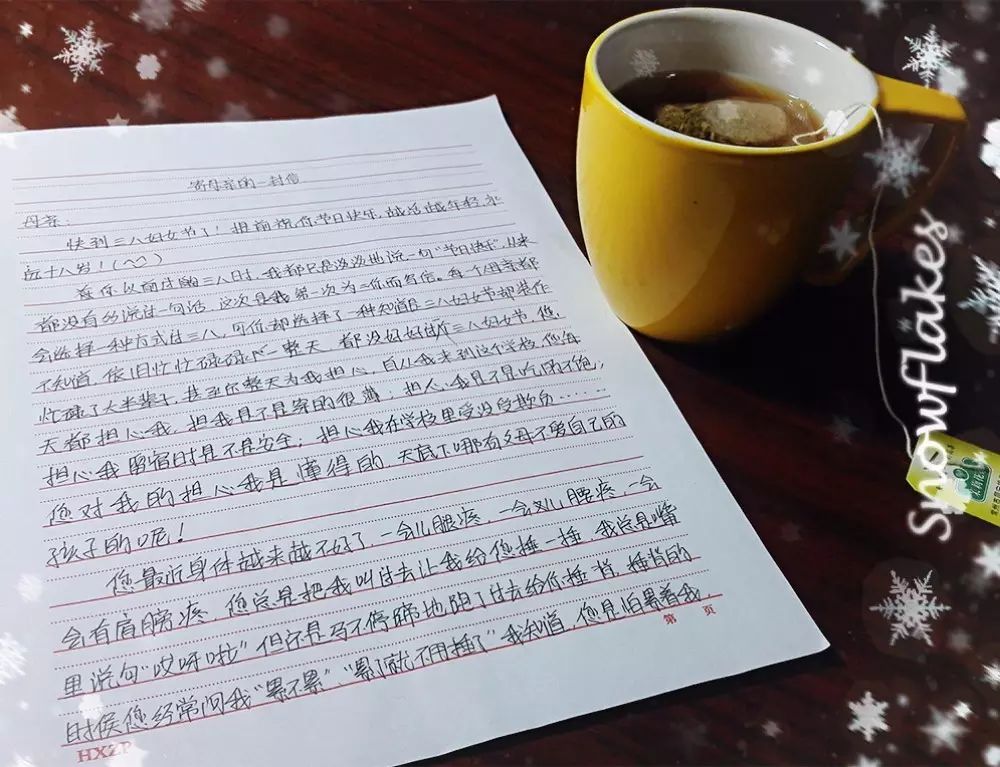 寄母亲的一封信
母亲:
快到三八妇女节了!提前祝你节日快乐,越活越年轻,永
远十八岁!(^◡^)
在你以前过的三八时,我都只是淡淡地说一句"节日快乐",从来
都没有多说过一句话,这次是我第一次为三八而写信。每个母亲都
会选择一种方式过三八,可你却选择了一种知道三八妇女节却装作
不知道,依旧忙忙碌碌的一整天,都没好好过三八妇女节,您
忙碌了大半辈子,甚至还整天为我担心,自从我来到这个学校,您每
天都担心我,担我是不是穿的很薄,担心我是不是吃的不饱,
担心我留宿时是不是安全,担心我在学校里受没受欺负……
您对我的担心我是懂得的,天底下哪有父母不爱自己的
孩子的呢!
您最近身体越来越不好了,一会儿腿疼,一会又儿腰疼,一会
会有肩膀疼,您总是把我叫过去让我给您捶一捶,我总是嘴
里说句"哎呀啦"但还是马不停蹄地跑了过去给你捶背,捶背的
时候您经常问我"累不累""累了就不用捶了"我知道,您是怕累着我,
第 页
HXZP
Snowflakes
茉莉花